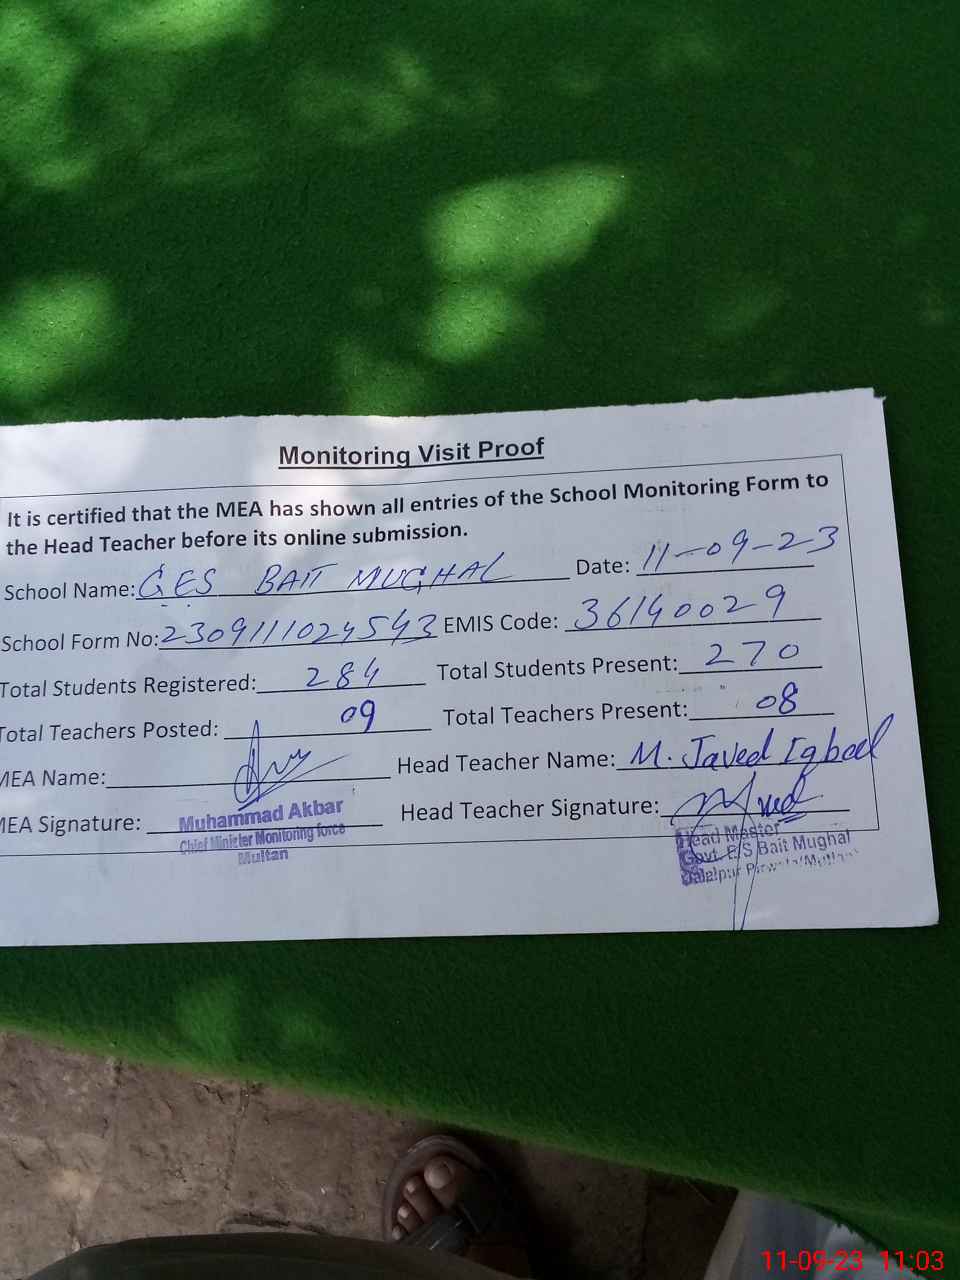 Monitoring Visit Proof
It is certified that the MEA has shown all entries of the School Monitoring Form to
the Head Teacher before its online submission.
School Name: GES BAIT MUGHAL Date: 11-09-23
School Form No: 2309111024543 EMIS Code: 36140029
Total Students Registered: 284 Total Students Present: 270
Total Teachers Posted: 09 Total Teachers Present: 08
MEA Name: Head Teacher Name: M. Javed Iqbal
MEA Signature: Head Teacher Signature:
Muhammad Akbar
Chief Minister Monitoring force
Multan
Head Master
Govt. E/S Bait Mughal
Jalalpur
11-09-23 11:03